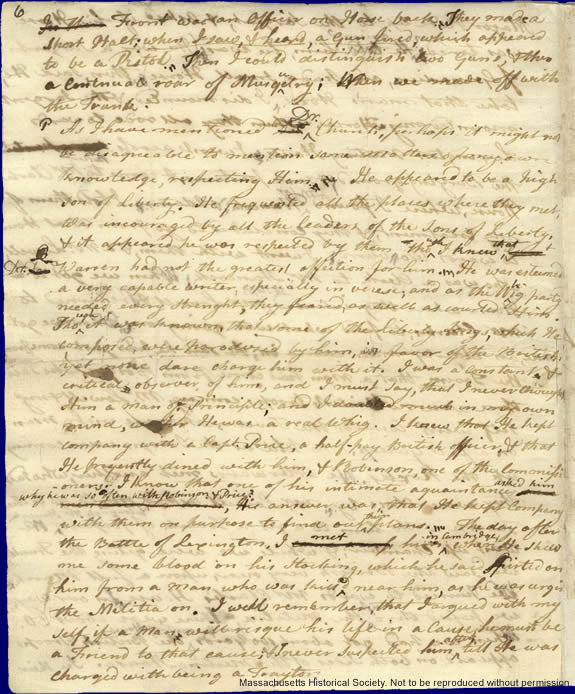 6
In their Front was an Officer on Horse back. They made a
Short Halt; when I saw, & heard, a Gun fired, which appeared
to be a Pistol. Then I could distinguish two Guns, & then
a Continual roar of Musquetry; When we made off with
the Trunk.
P As I have mentioned Dr. Church, perhaps it might not
be disagreeable to mention some Matters of my own
knowledge, respecting Him. He appeared to be a high
son of Liberty. He frequented all the places where they met,
Was incouraged by all the leaders of the Sons of Liberty,
& it appeared he was respected by them, Though I knew that
Dr. Warren had not the greatest affection for him. He was esteemed
a very capable writer, especially in verese; and as the Whig party
needed every Strenght, they feared, as well as courted Him.
Though it was known, that some of the Liberty Songs, which He
composed, were parodized by him, in favor of the British,
yet none dare charge him with it. I was a constant &
critical observer of him, and I must say, that I never thought
Him a man of Principle; and I doubted much in my own
mind, wether He was a real Whig. I knew that He kept
company with a Capt. Price, a half-pay British officer, & that
He frequently dined with him, & Robinson, one of the Commissi-
oners. I know that one of his intimate aquaintance asked him
why he was so often with Robinson & Price?
His answer was, that He kept Company
with them on purpose to find out their plans. The day after
the Battle of Lexington, I met him in Cambridge, when He shew
me some blood on his stocking, which he said spirted on
him from a man who was killed near him, as he was urging
the Militia on. I well remember, that I argued with my
self, if a Man will risque his life in a Cause, he must be
a Friend to that cause; & I never suspected him after, till He was
charged with being a Traytor.
Massachusetts Historical Society. Not to be reproduced without permission.